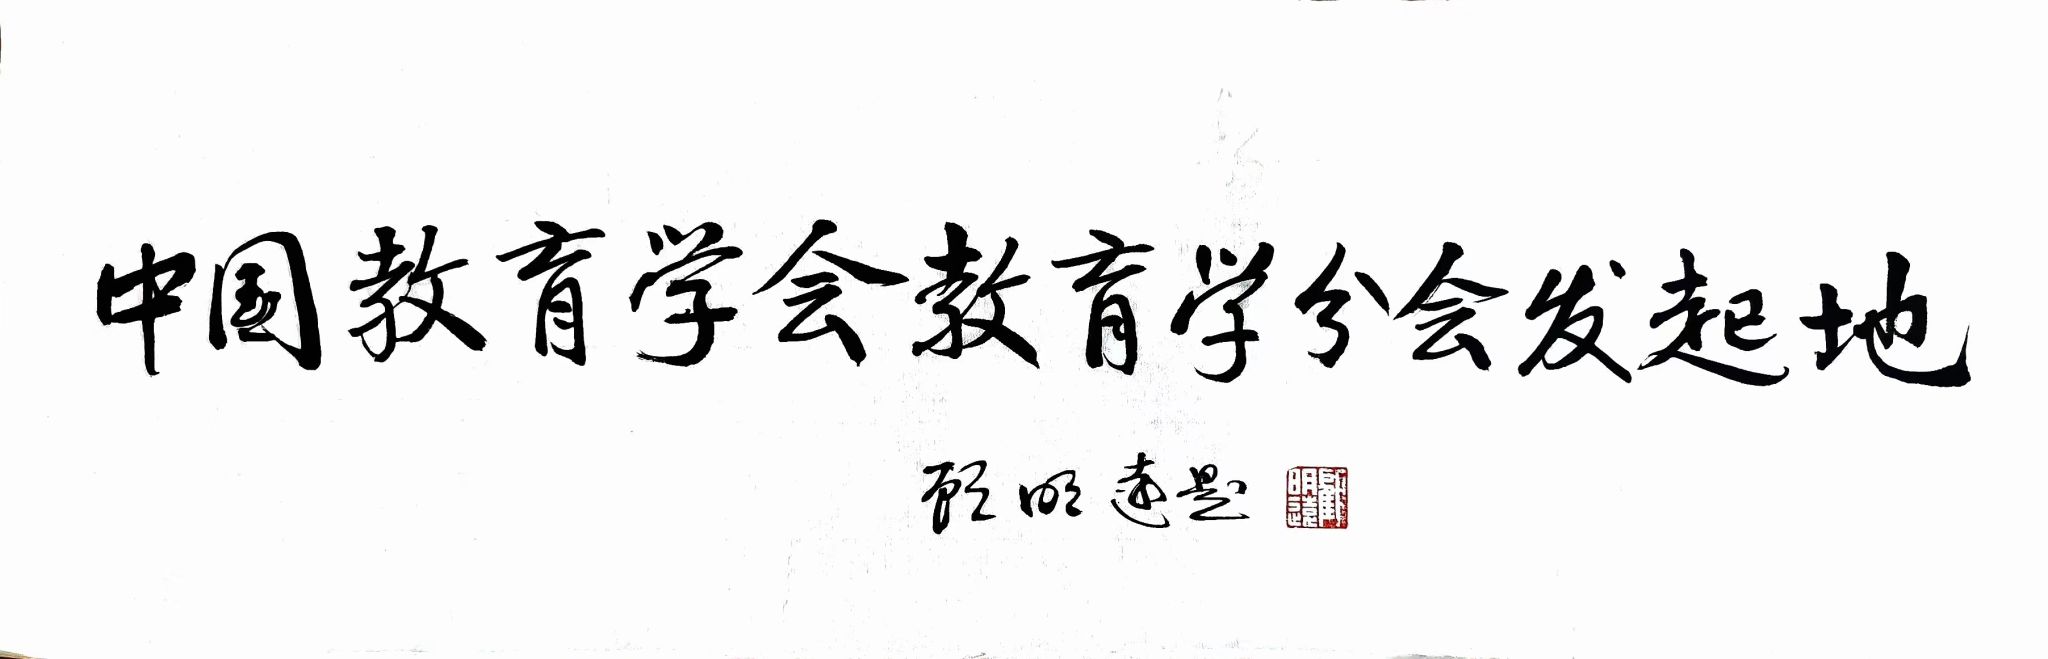 中国教育学会教育学分会发起地
顾明远题
顾明远